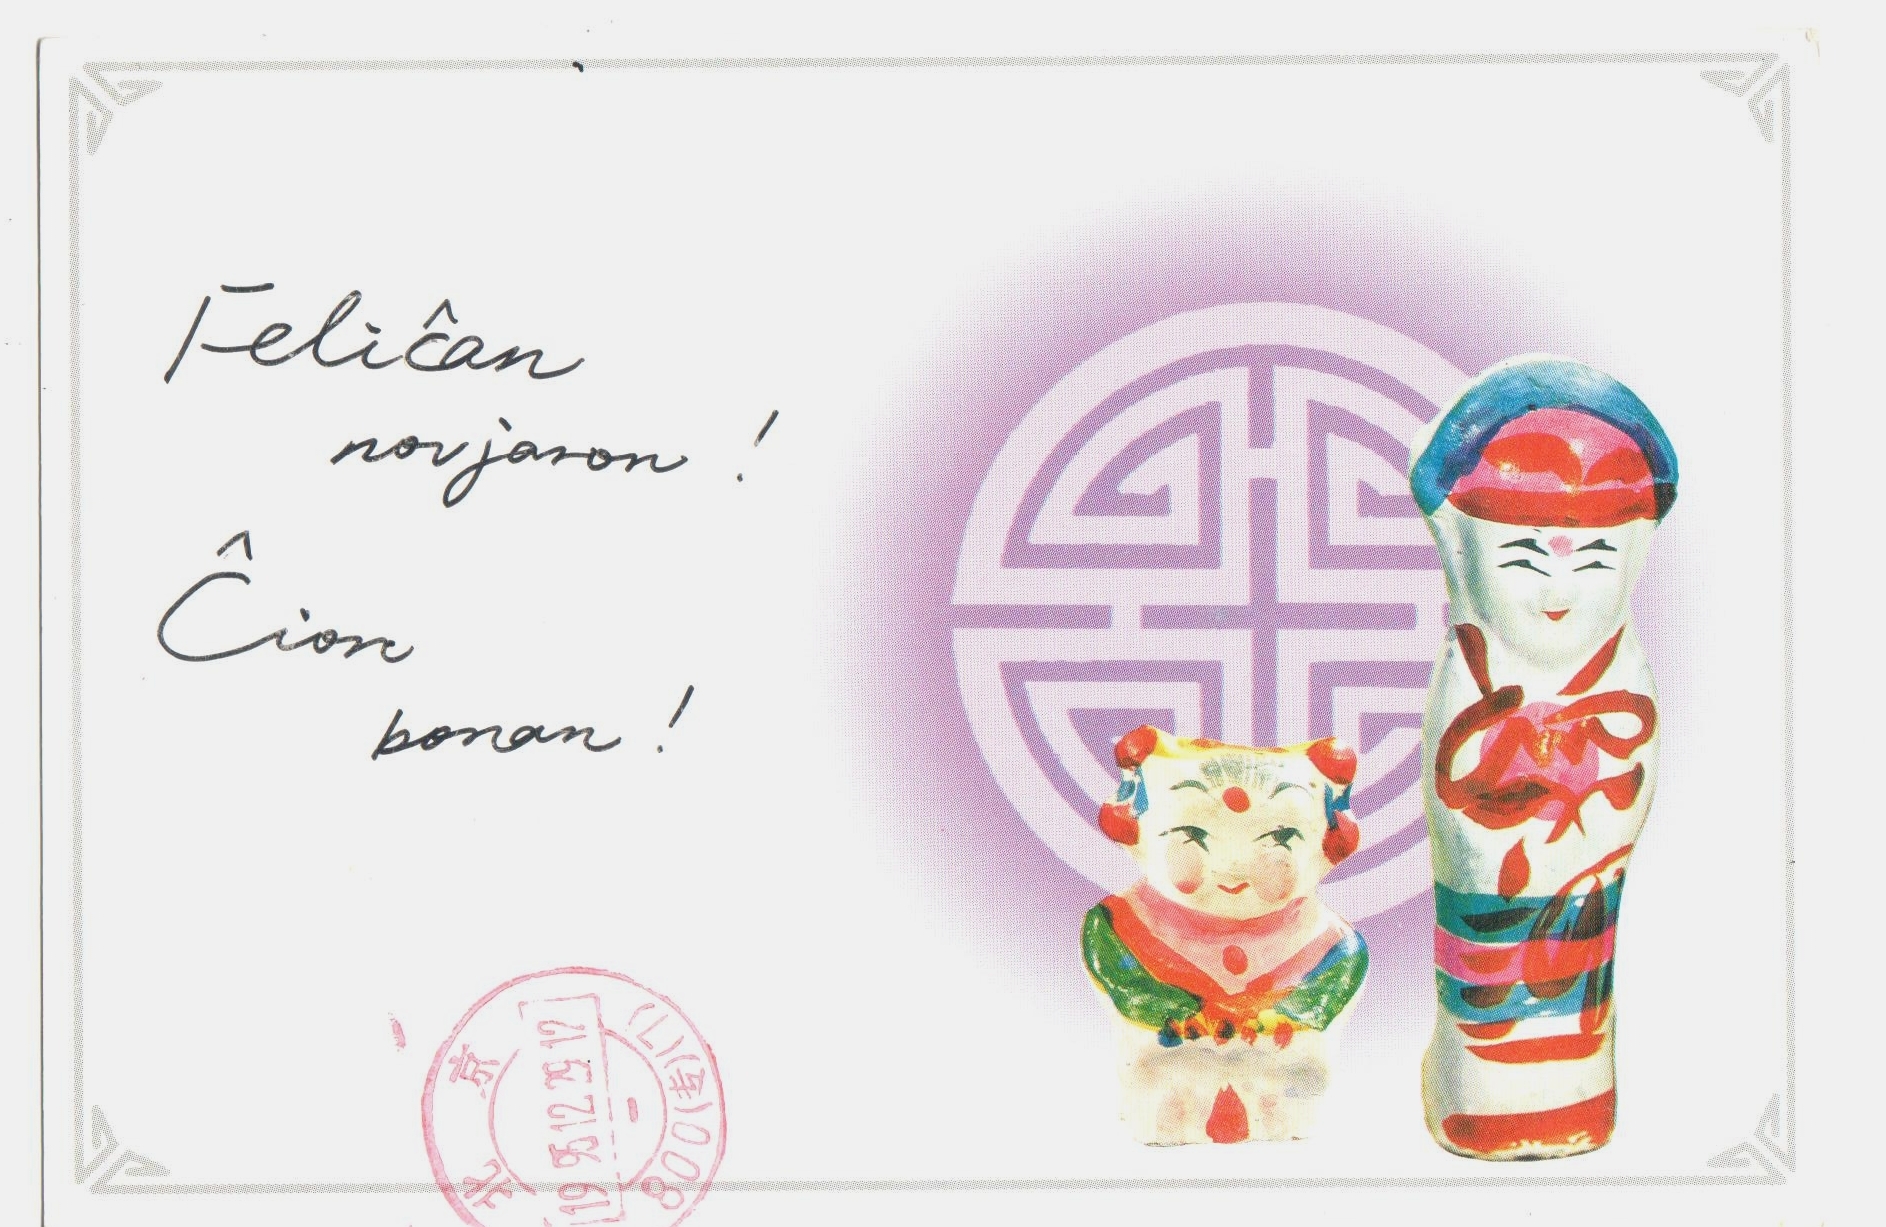 Feliĉan
novjaron !
Ĉion
bonan !
北京
1995.12.29.12